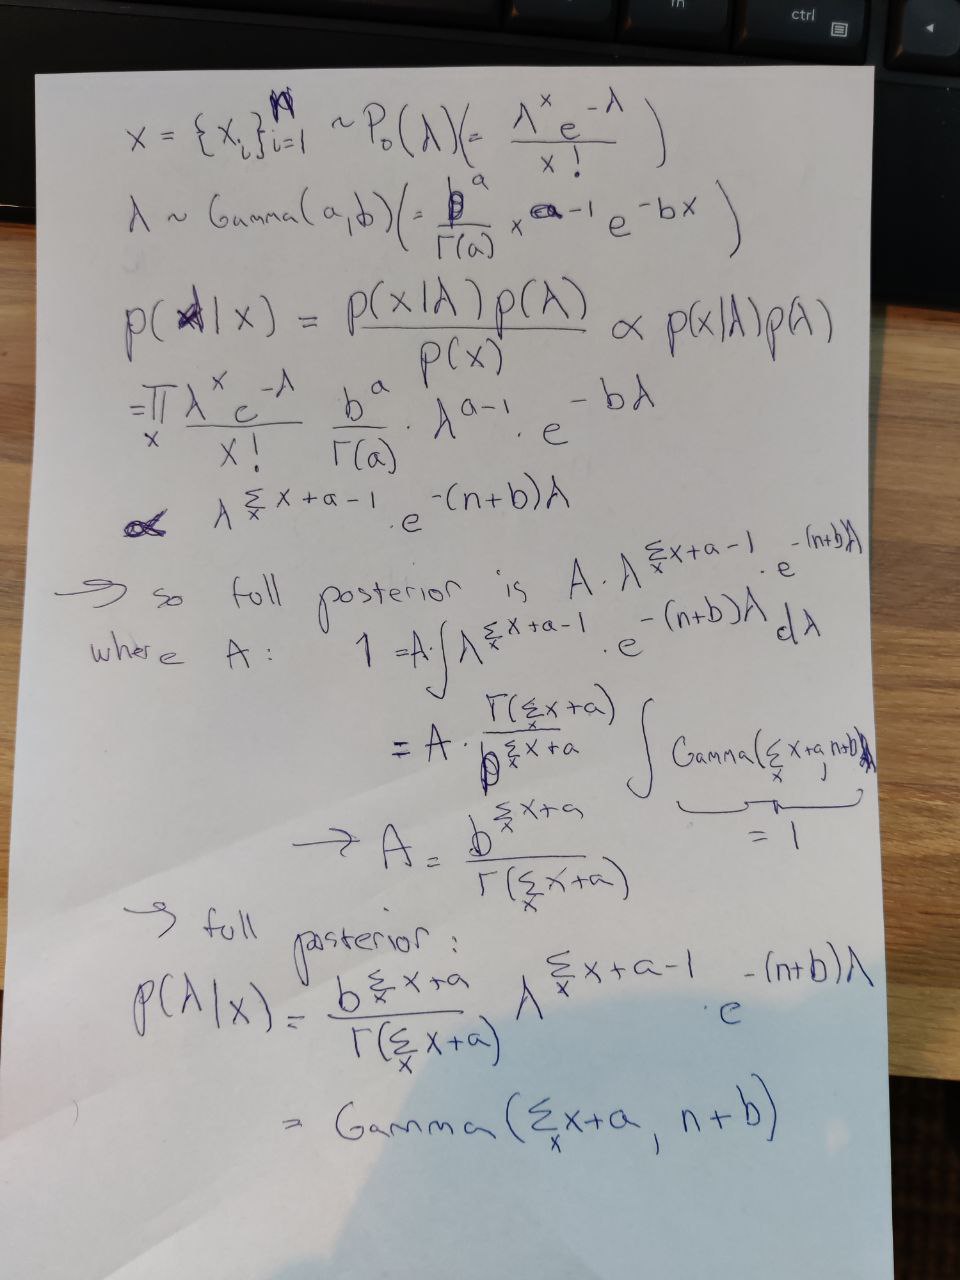 fn
ctrl
x = {x_i}_{i=1}^n ~ Po(λ)(= λ^x e^{-λ} / x!)
λ ~ Gamma(a,b)(= b^a / Γ(a) x^{a-1} e^{-bx})
p(λ|x) = p(x|λ)p(λ) / p(x) ∝ p(x|λ)p(λ)
= ∏_x λ^x e^{-λ} / x! b^a / Γ(a) · λ^{a-1} · e^{-bλ}
∝ λ^{Σ_x x+a-1} · e^{-(n+b)λ}
→ so full posterior is A · λ^{Σ_x x+a-1} · e^{-(n+b)λ}
where A: 1 = A · ∫ λ^{Σ_x x+a-1} · e^{-(n+b)λ} dλ
= A · Γ(Σ_x x+a) / b^{Σ_x x+a} ∫ Gamma(Σ_x x+a, n+b)
= 1
→ A = b^{Σ_x x+a} / Γ(Σ_x x+a)
→ full posterior:
p(λ|x) = b^{Σ_x x+a} / Γ(Σ_x x+a) λ^{Σ_x x+a-1} · e^{-(n+b)λ}
= Gamma(Σ_x x+a, n+b)